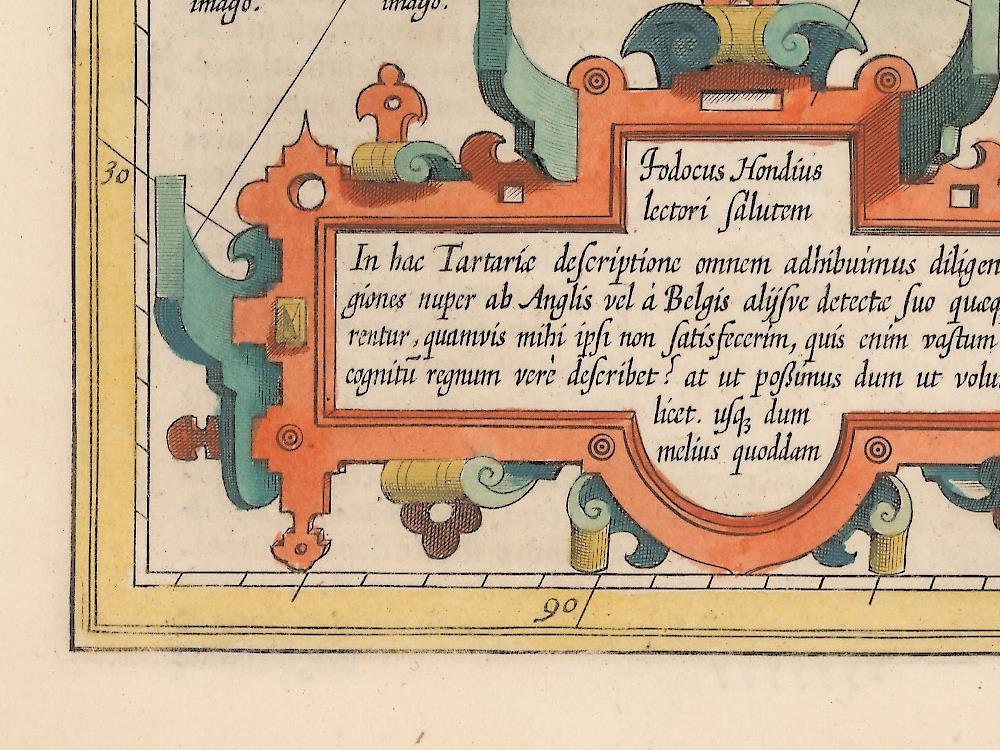 imago. imago.
30
Jodocus Hondius
lectori ſalutem
In hac Tartariæ deſcriptione omnem adhibuimus diligen
giones nuper ab Anglis vel á Belgis alijſve detectæ ſuo quæq
rentur, quamvis mihi ipſi non ſatisfecerim, quis enim vaſtum
cognitū regnum verè deſcribet? at ut poßimus dum ut volu
licet. uſqꝫ dum
melius quoddam
90